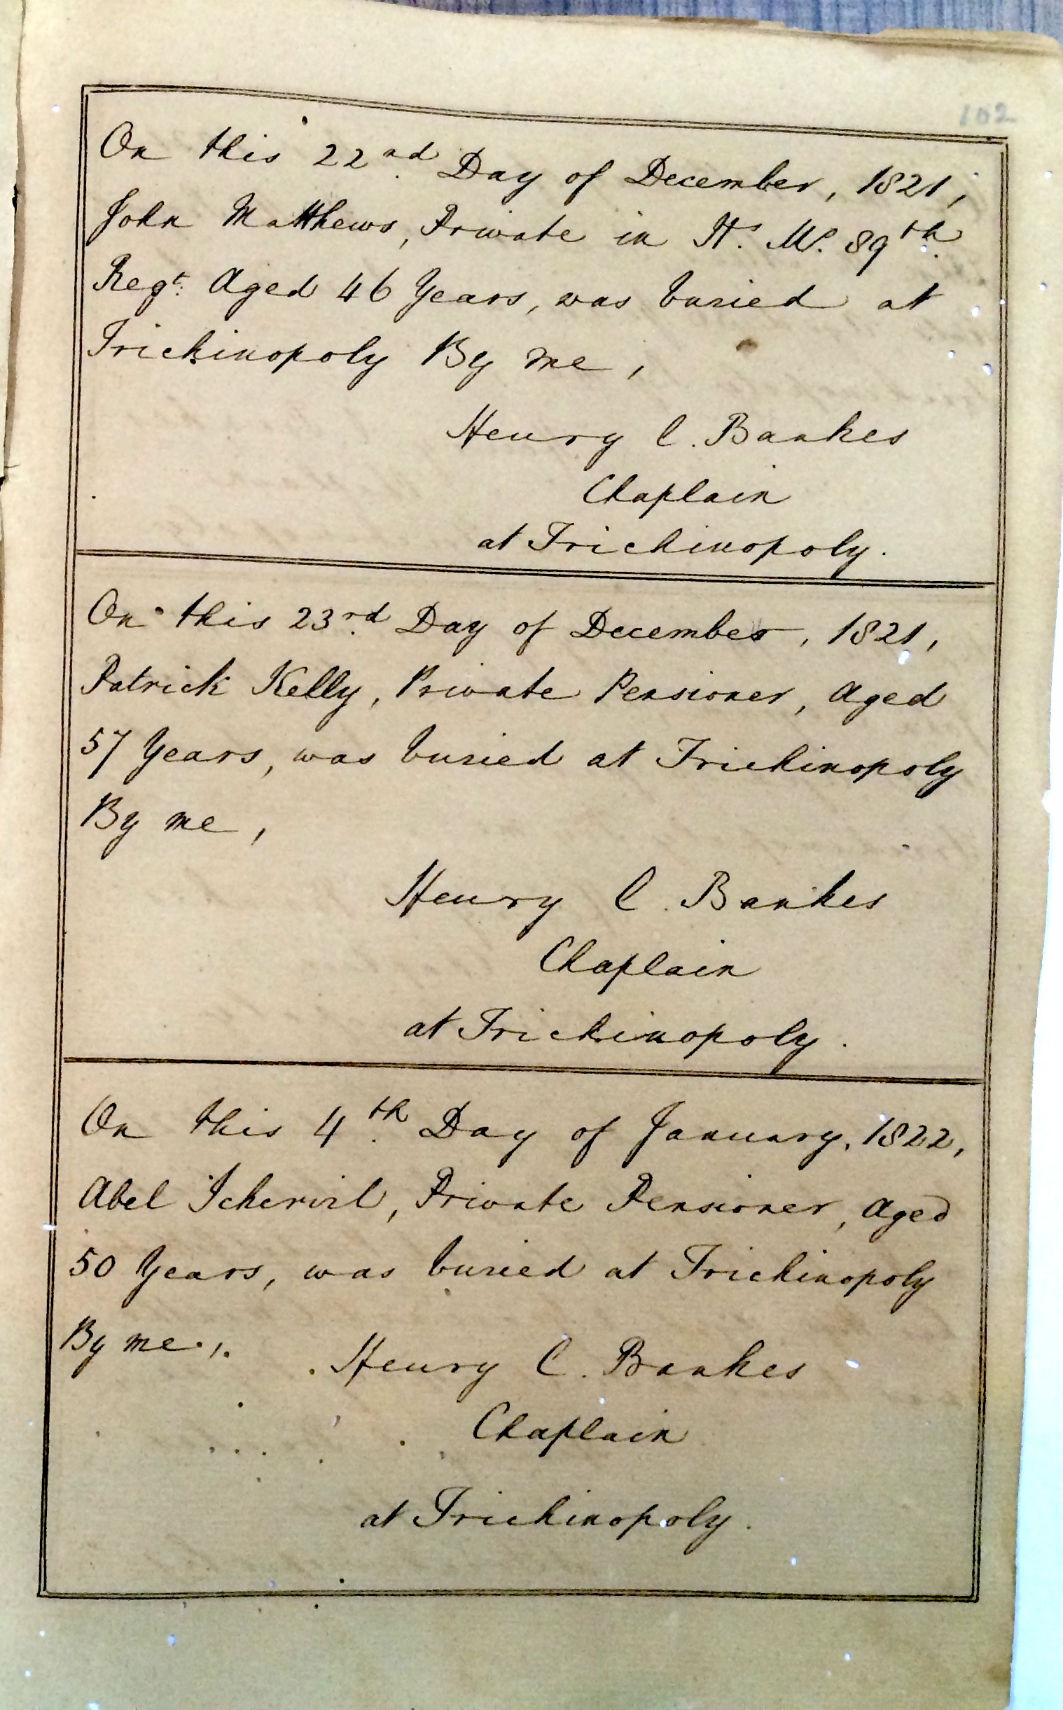 102
On this 22nd Day of December, 1821,
John Matthews, Private in H. M. 89th
Regt. Aged 46 Years, was buried at
Trichinopoly By me,
Henry C. Bankes
Chaplain
at Trichinopoly.
On this 23rd Day of December, 1821,
Patrick Kelly, Private Pensioner, Aged
57 Years, was buried at Trichinopoly
By me,
Henry C. Bankes
Chaplain
at Trichinopoly.
On this 4th Day of January, 1822,
Abel, Private Pensioner, Aged
50 Years, was buried at Trichinopoly
By me,
Henry C. Bankes
Chaplain
at Trichinopoly.